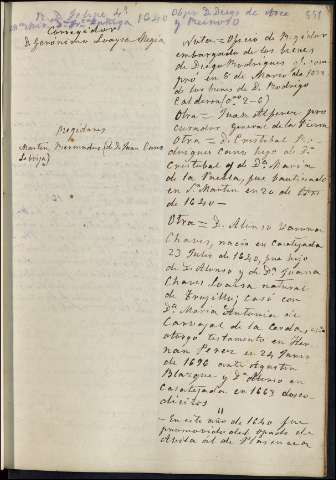 R. D. Felipe 4º 1640 Obpo D. Diego de Arce
y Reinoso
551
Corregidor
D. Geronimo Loaysa Mexia
Regidores
Martin Bermudez
Nota = Oficio de Regidor
embargado de los bienes
de Diego Rodriguez
en 8 de Marzo de
de los bienes de D. Rodrigo
Calderon
Otra = Juan Alferez, pro
curador general de la tierra
Otra = D. Cristobal Ro-
driguez Cano hijo de Dn
Cristobal y de Dª Maria
de la Puebla, fue bautizado
en Sn Martin en 20 de
de 1640 -
Otra = D. Alonso
Chaves, nacio en Casatejada
23 Julio de 1640, fue hijo
de D. Alonso y de Dª Juana
Chaves Loaysa natural
de Trugillo; casó con
Dª Maria Antonia de
Carvajal de la Cerda,
otorgó testamento en Her
nan Perez en 24 Junio
de 1696 ante Agustin
Blazquez y Dn Alonso en
Casatejada en 1663
- En este año de 1640 fue
promovido del opado de
Avila al de Plasencia